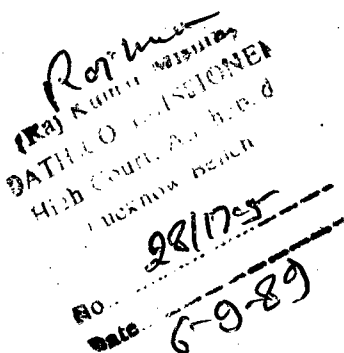 (Raj Kumar
OATH COMMISSIONER
High Court, Allahabad
Lucknow Bench
No... 28/17
Date... 6-9-89